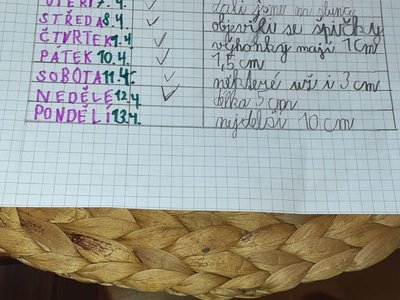 ÚTERÝ 7.4. ✓ dali jsme na slunce
STŘEDA 8.4. ✓ objevili se špičky
ČTVRTEK 9.4. ✓ výhonky mají 1cm
PÁTEK 10.4. ✓ 1,5 cm
SOBOTA 11.4. ✓ některé už i 3 cm
NEDĚLĚ 12.4. ✓ délka 5 cm
PONDĚLÍ 13.4. nejdelší 10 cm